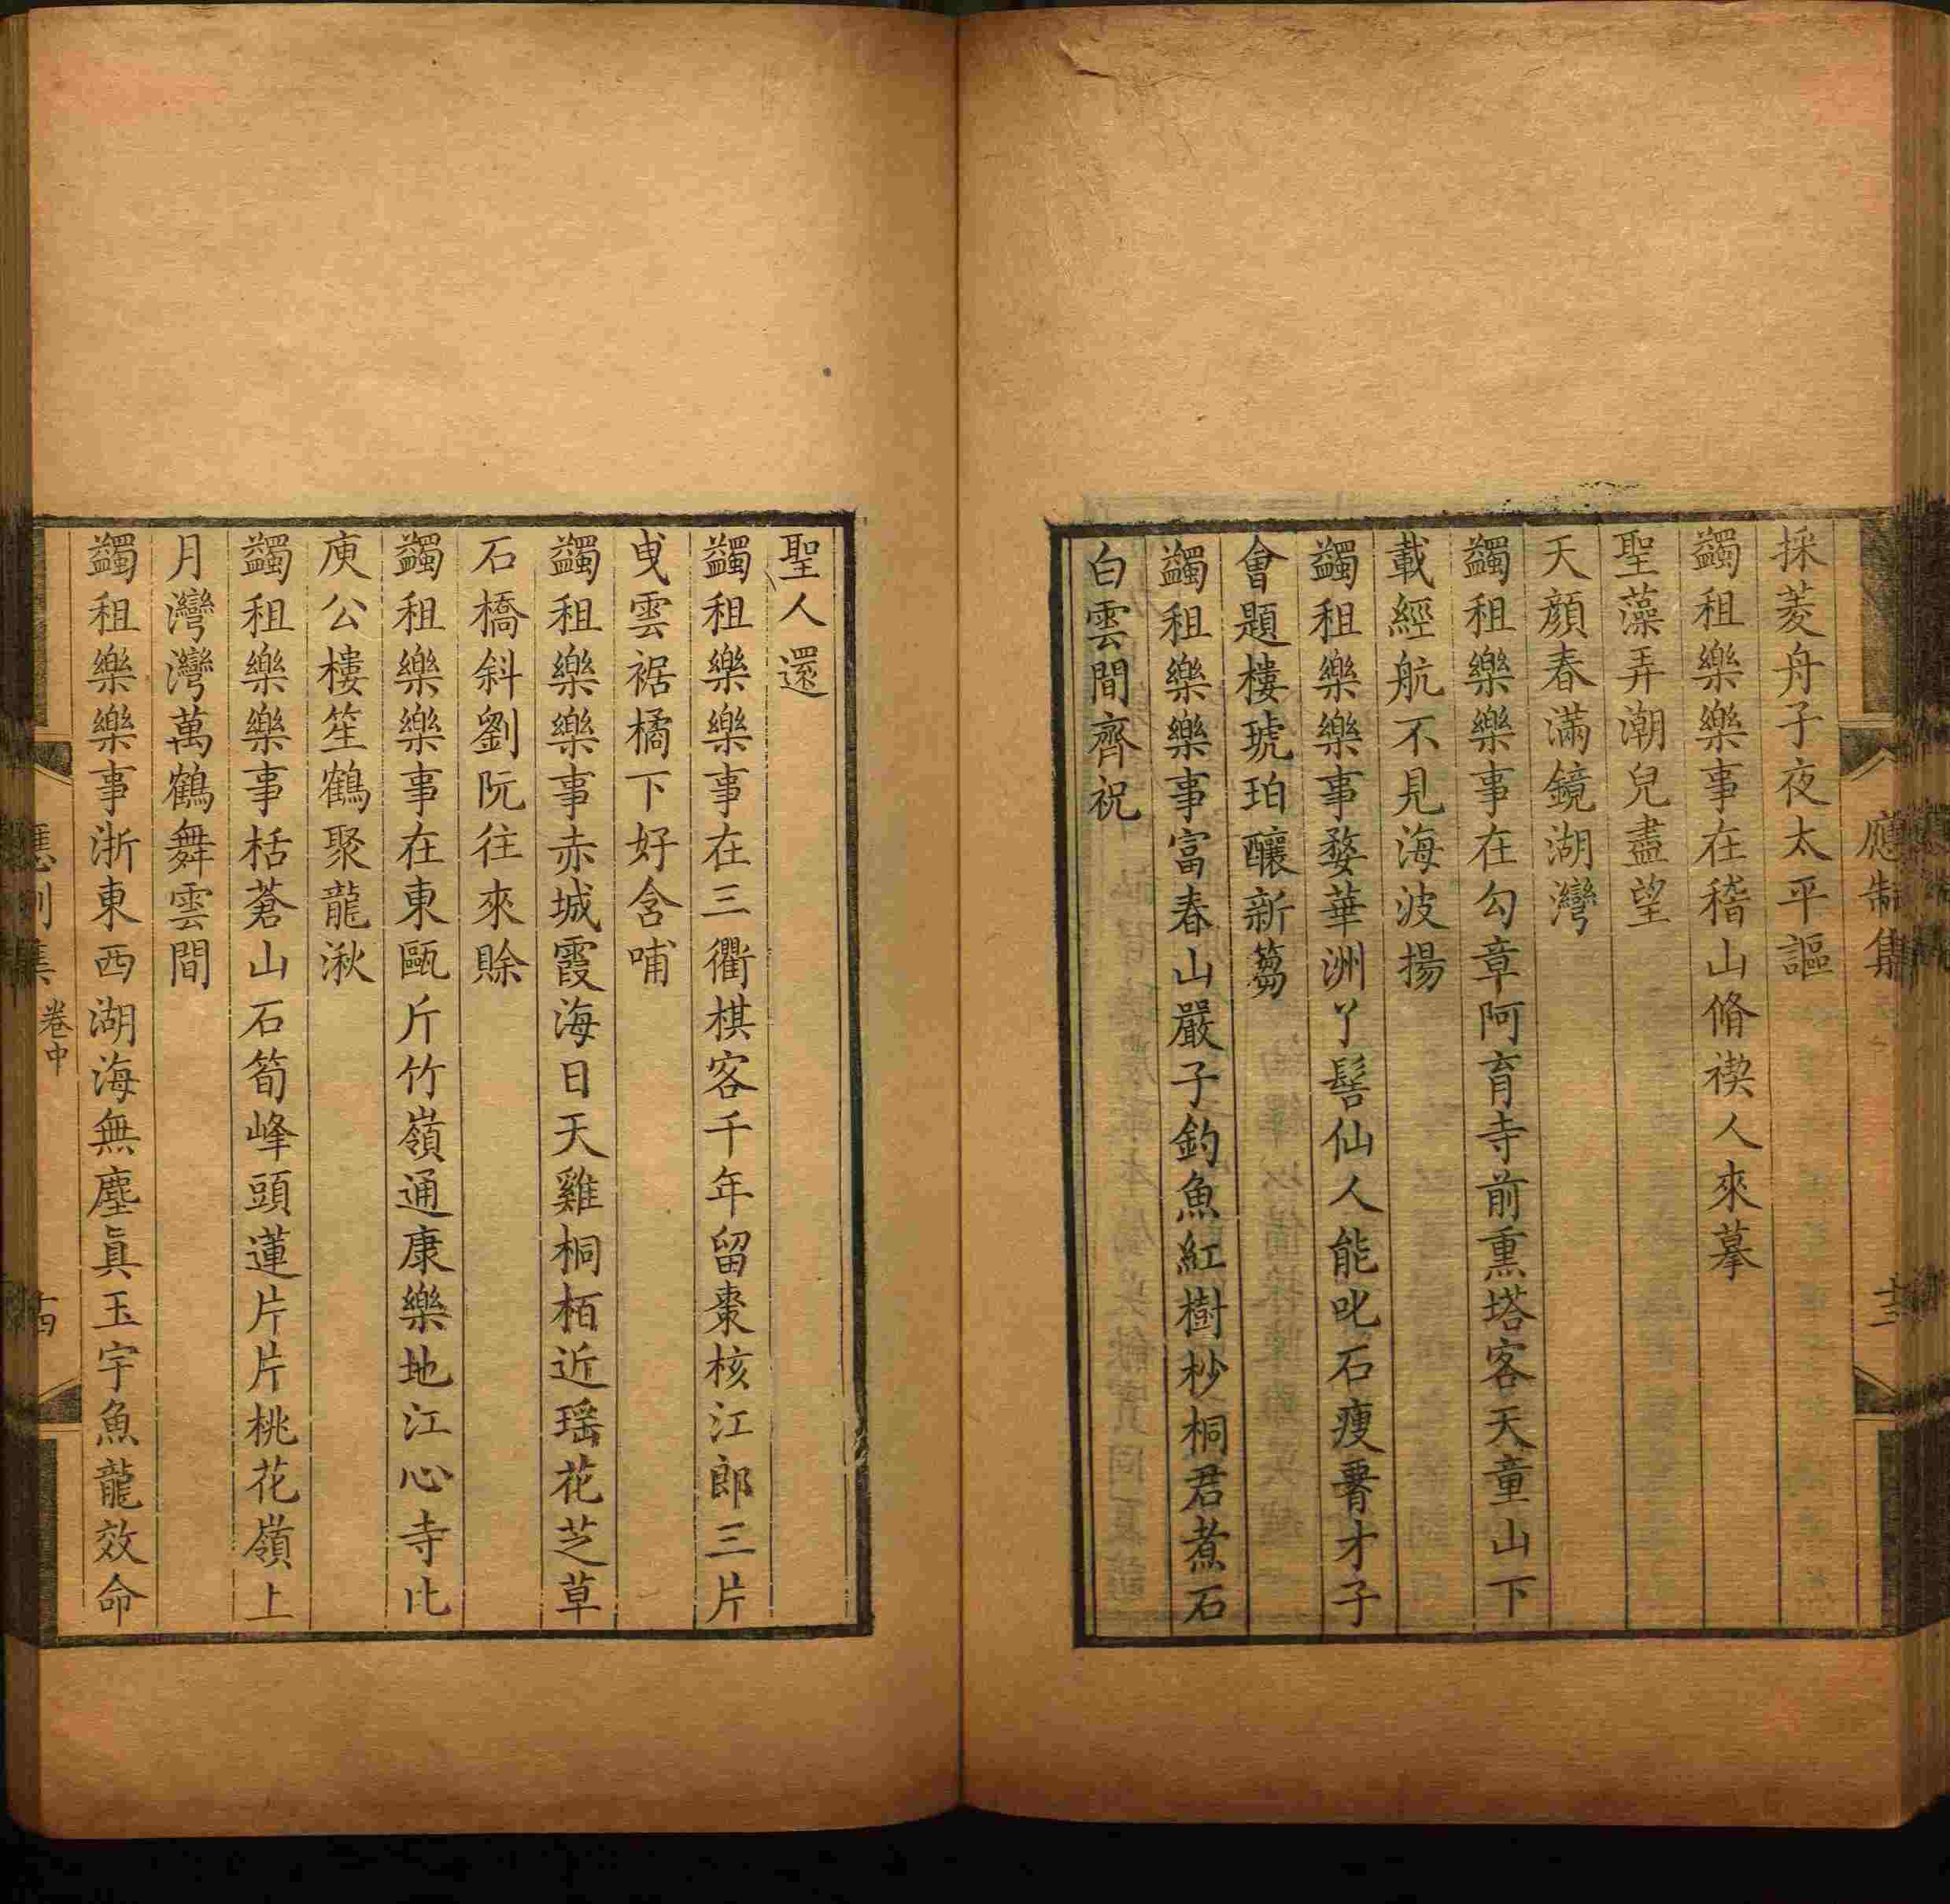 應制集
十三
採菱舟子夜太平謳
蠲租樂樂事在稽山脩禊人來摹
聖藻弄潮兒盡望
天顔春滿鏡湖灣
蠲租樂樂事在勾章阿育寺前熏塔客天童山下
載經航不見海波揚
蠲租樂樂事婺華洲丫髻仙人能叱石瘦𦝫才子
會題樓琥珀釀新蒭
蠲租樂樂事富春山嚴子釣魚紅樹杪桐君煮石
白雲間齊祝
聖人還
蠲租樂樂事在三衢棋客千年留棗核江郎三片
曳雲裾橘下好含哺
蠲租樂樂事赤城霞海日天雞桐栢近瑶花芝草
石橋斜劉阮往來賒
蠲租樂樂事在東甌斤竹嶺通康樂地江心寺比
庾公樓笙鶴聚龍湫
蠲租樂樂事栝蒼山石筍峰頭蓮片片桃花嶺上
月灣灣萬鶴舞雲間
蠲租樂樂事浙東西湖海無塵眞玉宇魚龍效命
應制集
卷中
十四